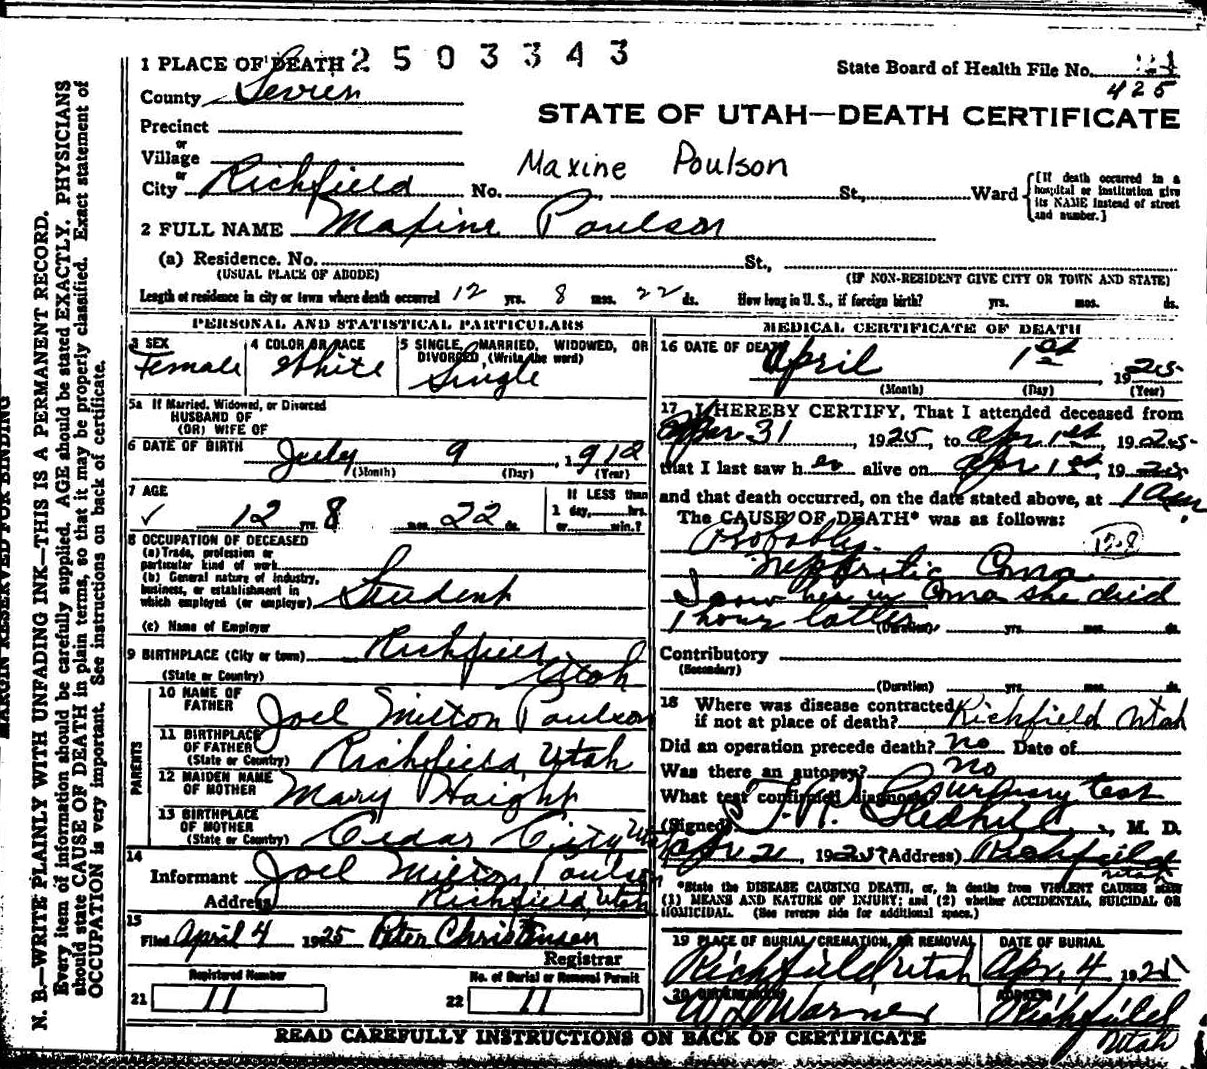 1 PLACE OF DEATH 2503343
State Board of Health File No.
425
County Sevier
STATE OF UTAH—DEATH CERTIFICATE
Precinct
or
Village
Maxine Poulson
or
City Richfield No. St., Ward
[If death occurred in a
hospital or institution give
its NAME instead of street
and number.]
2 FULL NAME Maxine Poulson
(a) Residence. No. St.,
(USUAL PLACE OF ABODE) (IF NON-RESIDENT GIVE CITY OR TOWN AND STATE)
Length of residence in city or town where death occurred 12 yrs. 8 mos. 22 ds. How long in U. S., if foreign birth? yrs. mos. ds.
PERSONAL AND STATISTICAL PARTICULARS
3 SEX
Female
4 COLOR OR RACE
White
5 SINGLE, MARRIED, WIDOWED, OR
DIVORCED (Write the word)
Single
5a If Married, Widowed, or Divorced
HUSBAND OF
(OR) WIFE OF
6 DATE OF BIRTH July 9, 1912
(Month) (Day) (Year)
7 AGE
12 yrs. 8 mos. 22 ds.
If LESS than
1 day, hrs.
or min.?
8 OCCUPATION OF DECEASED
(a) Trade, profession or
particular kind of work
(b) General nature of industry,
business, or establishment in
which employed (or employer) Student
(c) Name of Employer
9 BIRTHPLACE (City or town) Richfield
(State or Country) Utah
PARENTS
10 NAME OF
FATHER Joel Milton Poulson
11 BIRTHPLACE
OF FATHER
(State or Country) Richfield, Utah
12 MAIDEN NAME
OF MOTHER Mary Haight
13 BIRTHPLACE
OF MOTHER
(State or Country) Cedar City, Utah
14
Informant Joel Milton Poulson
Address Richfield, Utah
15
Filed April 4 1925 Peter Christensen
Registrar
Registered Number
21 11
No. of Burial or Removal Permit
22 11
MEDICAL CERTIFICATE OF DEATH
16 DATE OF DEATH
April 1st, 1925
(Month) (Day) (Year)
17 I HEREBY CERTIFY, That I attended deceased from
31, 1925, to Apr 1st, 1925
that I last saw her alive on Apr 1st, 1925
and that death occurred, on the date stated above, at 1 am.
The CAUSE OF DEATH* was as follows:
Probably
Nephritic Coma
I saw her in Coma she died
1 hour latter
(Duration) yrs. mos. ds.
Contributory
(Secondary)
(Duration) yrs. mos. ds.
18 Where was disease contracted
if not at place of death? Richfield Utah
Did an operation precede death? No Date of
Was there an autopsy? No
What test confirmed diagnosis? urinary test
(Signed) T. R. Gledhill, M. D.
, 1925 (Address) Richfield
Utah
*State the DISEASE CAUSING DEATH, or, in deaths from VIOLENT CAUSES state
(1) MEANS AND NATURE OF INJURY; and (2) whether ACCIDENTAL, SUICIDAL OR
HOMICIDAL. (See reverse side for additional space.)
19 PLACE OF BURIAL, CREMATION, OR REMOVAL
Richfield, Utah
DATE OF BURIAL
Apr. 4 1925
20 UNDERTAKER
Warner
ADDRESS
Richfield
Utah
READ CAREFULLY INSTRUCTIONS ON BACK OF CERTIFICATE
MARGIN RESERVED FOR BINDING
N. B.—WRITE PLAINLY WITH UNFADING INK—THIS IS A PERMANENT RECORD.
Every item of information should be carefully supplied. AGE should be stated EXACTLY. PHYSICIANS
should state CAUSE OF DEATH in plain terms, so that it may be properly classified. Exact statement of
OCCUPATION is very important. See instructions on back of certificate.